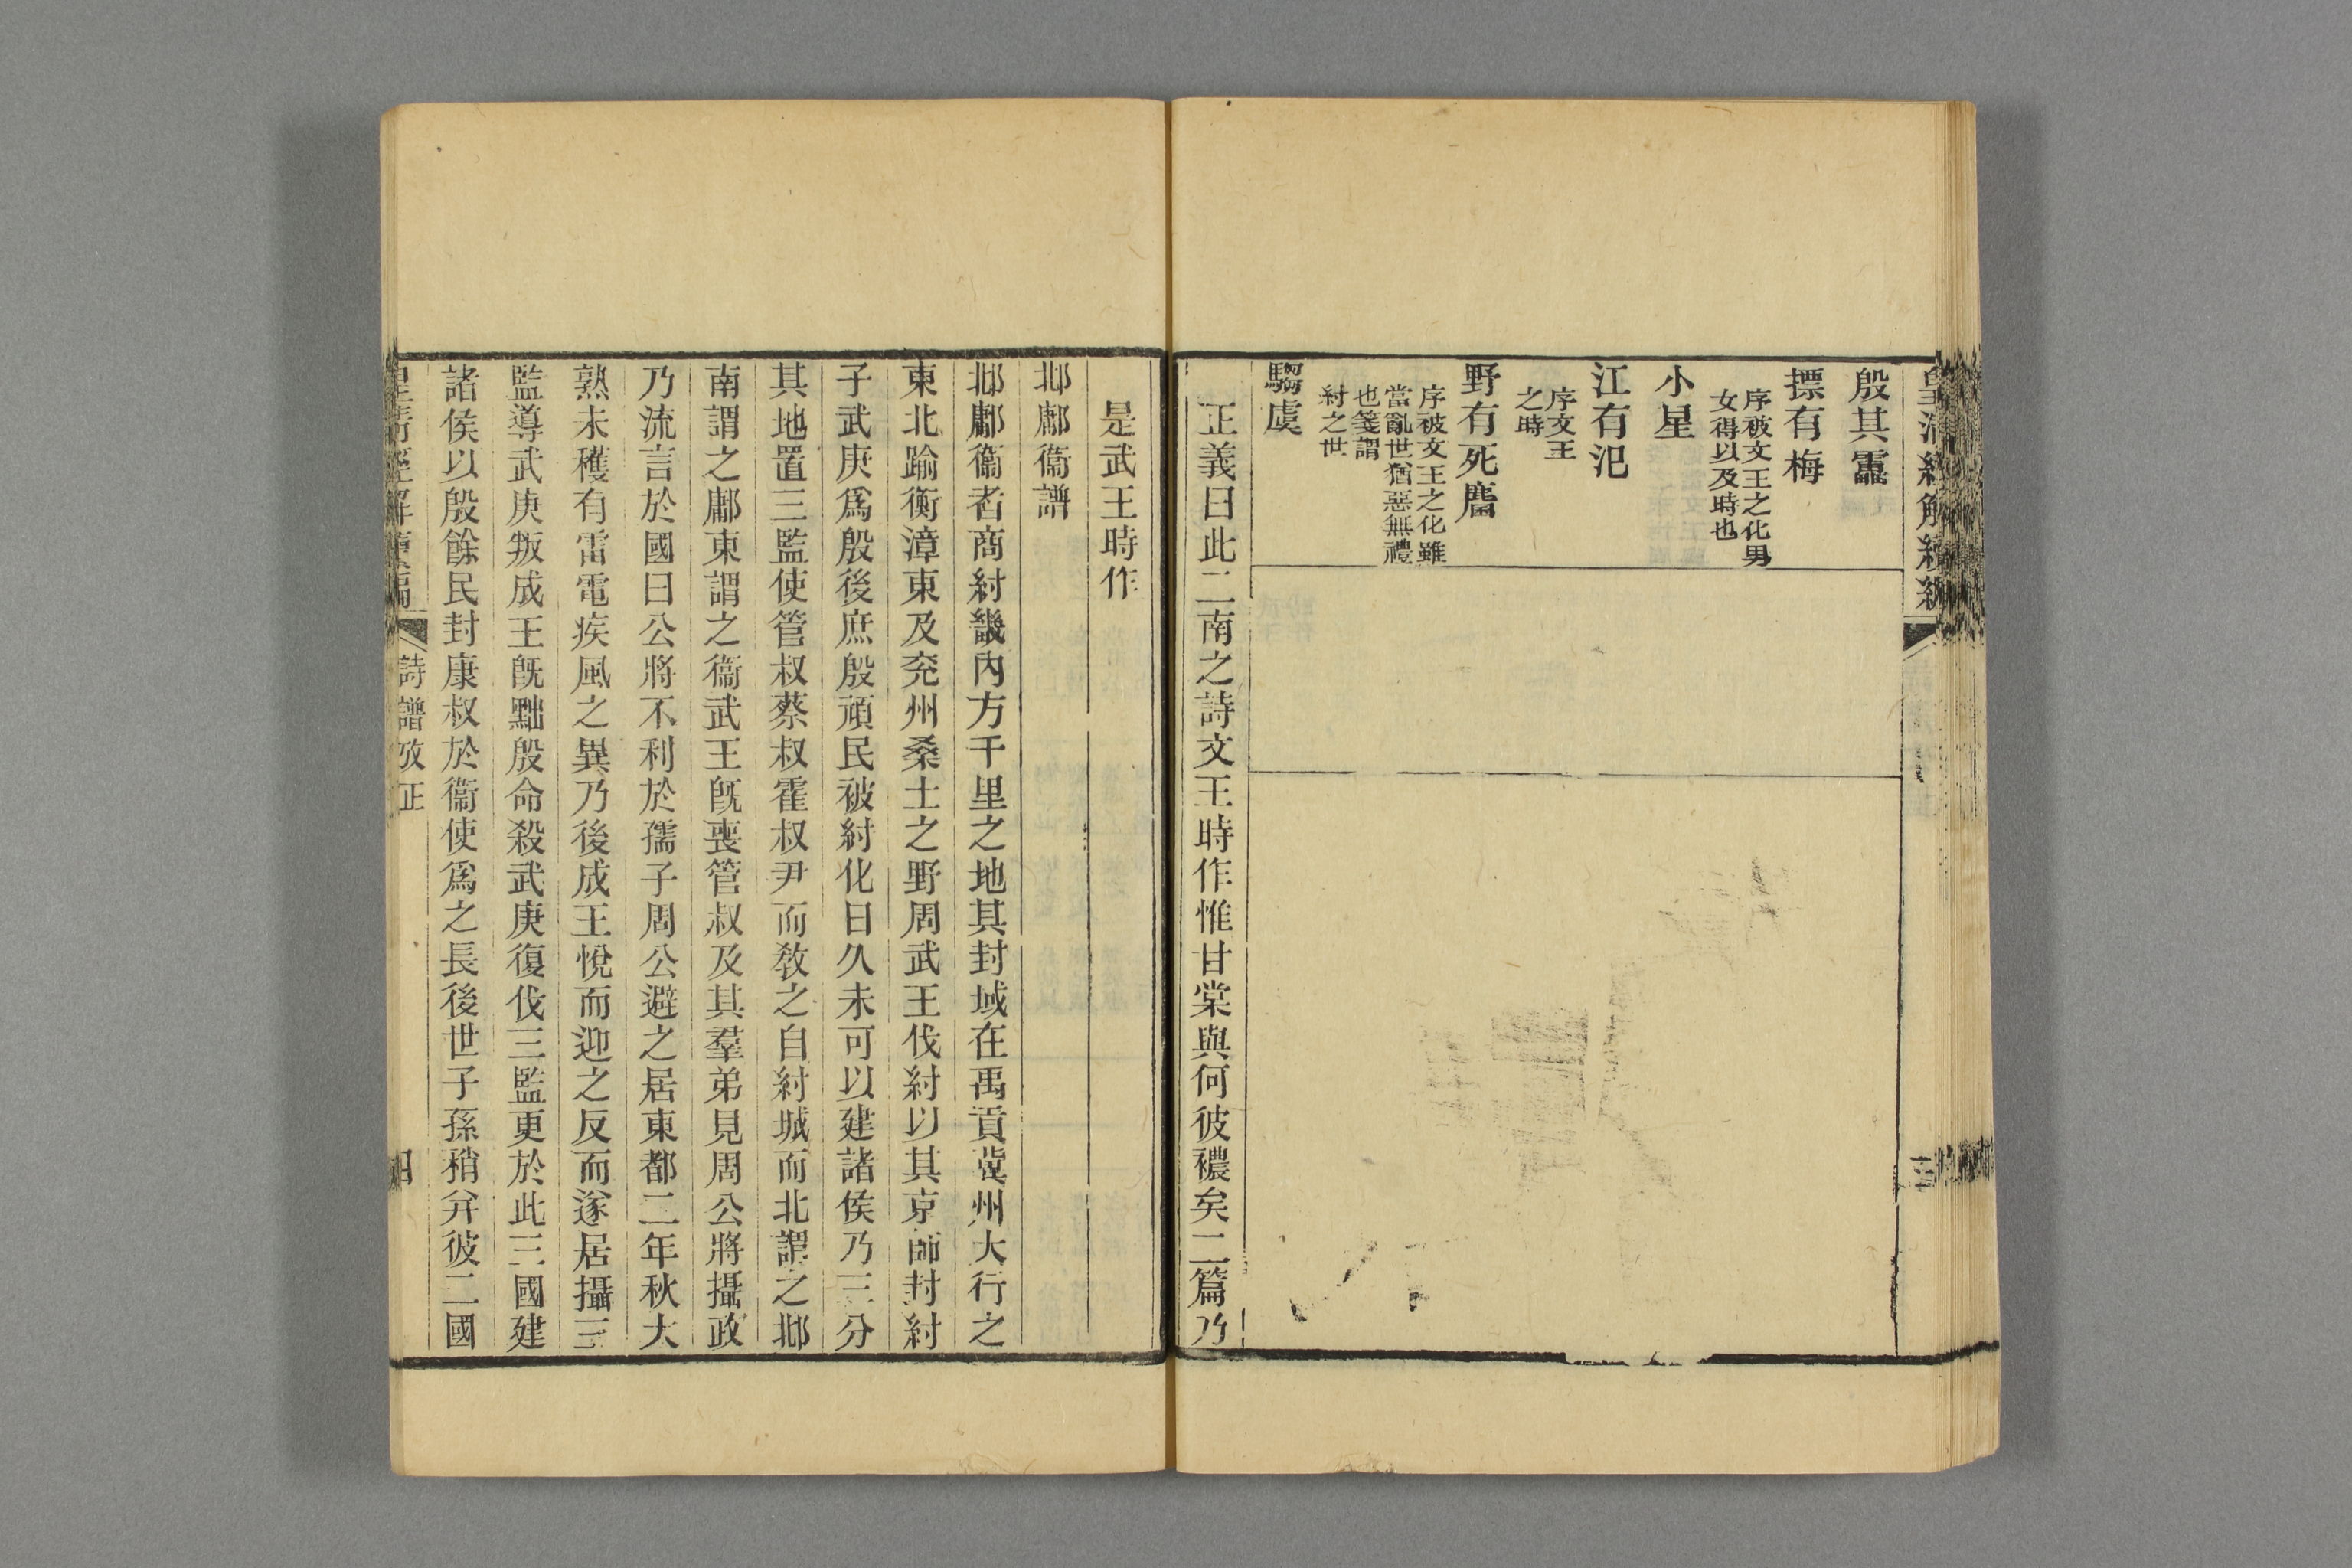 皇清經解續編
三
殷其靁
摽有梅
序被文王之化男
女得以及時也
小星
江有汜
序文王
之時
野有死麕
序被文王之化雖
當亂世猶惡無禮
也箋謂
紂之世
騶虞
正義曰此二南之詩文王時作惟甘棠與何彼襛矣二篇乃
是武王時作
邶鄘衞譜
邶鄘衞者商紂畿內方千里之地其封域在禹貢冀州大行之
東北踰衡漳東及兖州桑土之野周武王伐紂以其京師封紂
子武庚爲殷後庶殷頑民被紂化日久未可以建諸侯乃三分
其地置三監使管叔蔡叔霍叔尹而敎之自紂城而北謂之邶
南謂之鄘東謂之衞武王旣喪管叔及其羣弟見周公將攝政
乃流言於國曰公將不利於孺子周公避之居東都二年秋大
熟未穫有雷電疾風之異乃後成王悅而迎之反而遂居攝三
監導武庚叛成王旣黜殷命殺武庚復伐三監更於此三國建
諸侯以殷餘民封康叔於衞使爲之長後世子孫稍幷彼二國
皇淸經解續編
詩譜攷正
四